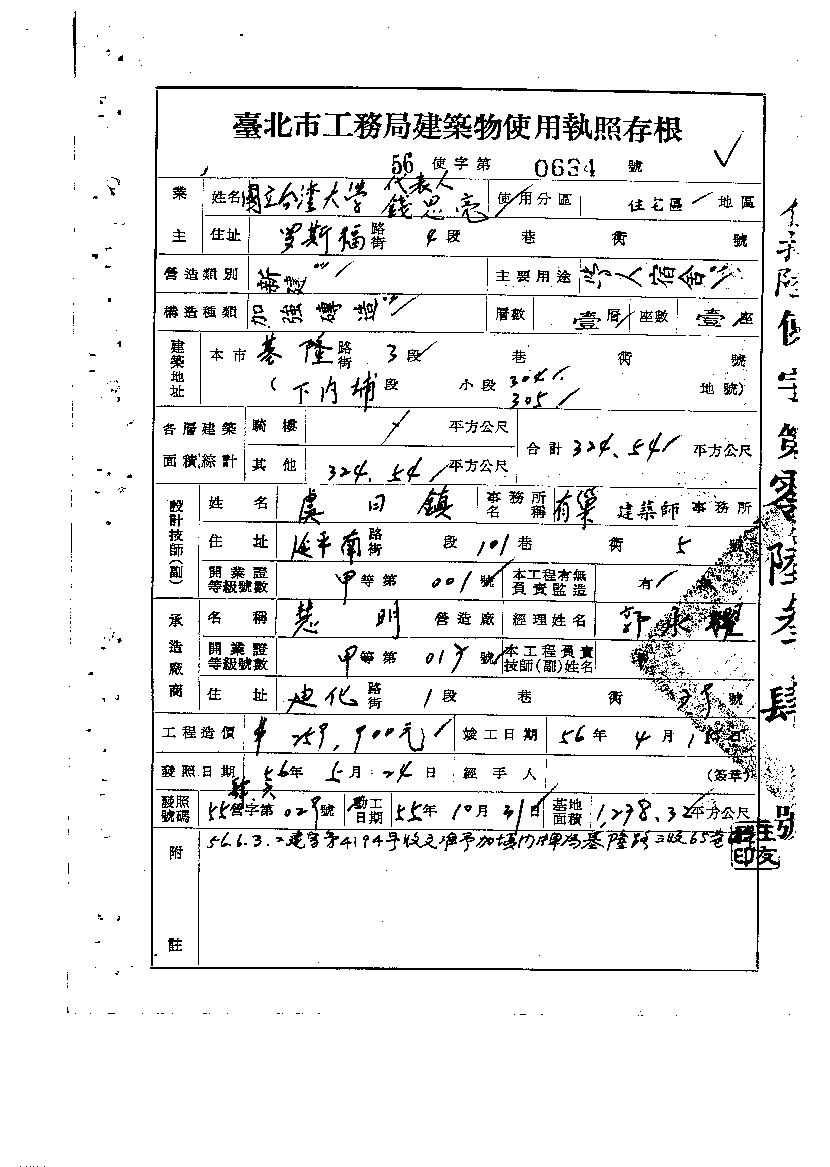 臺北市工務局建築物使用執照存根
56 使字第 0634 號
業主 姓名 國立台灣大學 代表人 錢思亮 使用分區 住宅區 地區
住址 罗斯福 路街 4段 巷 衖 號
營造類別 新建 主要用途 学人宿舍
構造種類 加強磚造 層數 壹層 座數 壹座
建築地址 本市 基隆 路街 3段 巷 衖 號
(下內埔段 小段 304 305 地號)
各層建築面積綜計 騎樓 平方公尺 合計 324.54 平方公尺
其他 324.54 平方公尺
設計技師(副) 姓名 虞曰鎮 事務所名稱 有巢 建築師事務所
住址 延平南 路街 段 101巷 衖 5 號
開業證等級號數 甲等第 001 號 本工程有無負責監造 有
承造廠商 名稱 慧明 營造廠 經理姓名 郭永
開業證等級號數 甲等第 號 本工程負責技師(副)姓名
住址 迪化 路街 1段 巷 衖 號
工程造價 900元 竣工日期 56年4月15日
發照日期 56年5月24日 經手人 (簽章)
發照號碼 55營字第 號 動工日期 55年10月31日 基地面積 1,278.32平方公尺
附註 56.6.3. 建字第4194号收文准予加填門牌為基隆路三段65巷
使字第零陸叁肆號